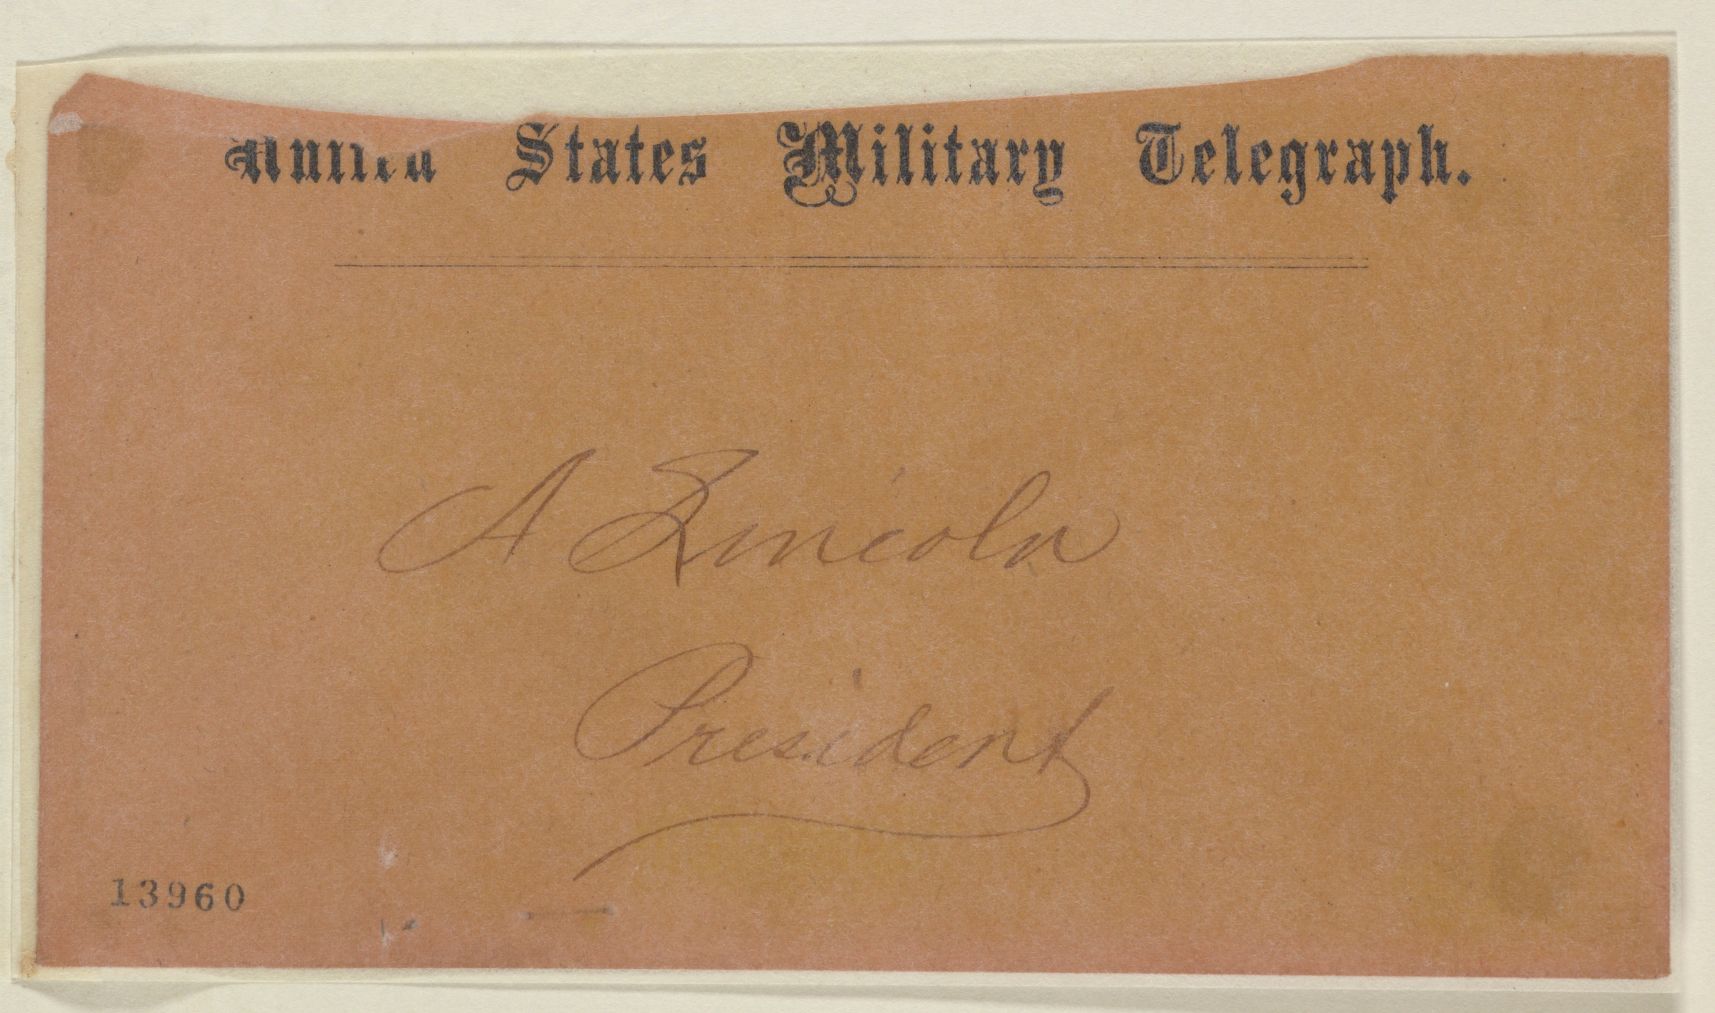 United States Military Telegraph.
A Lincoln
President
13960